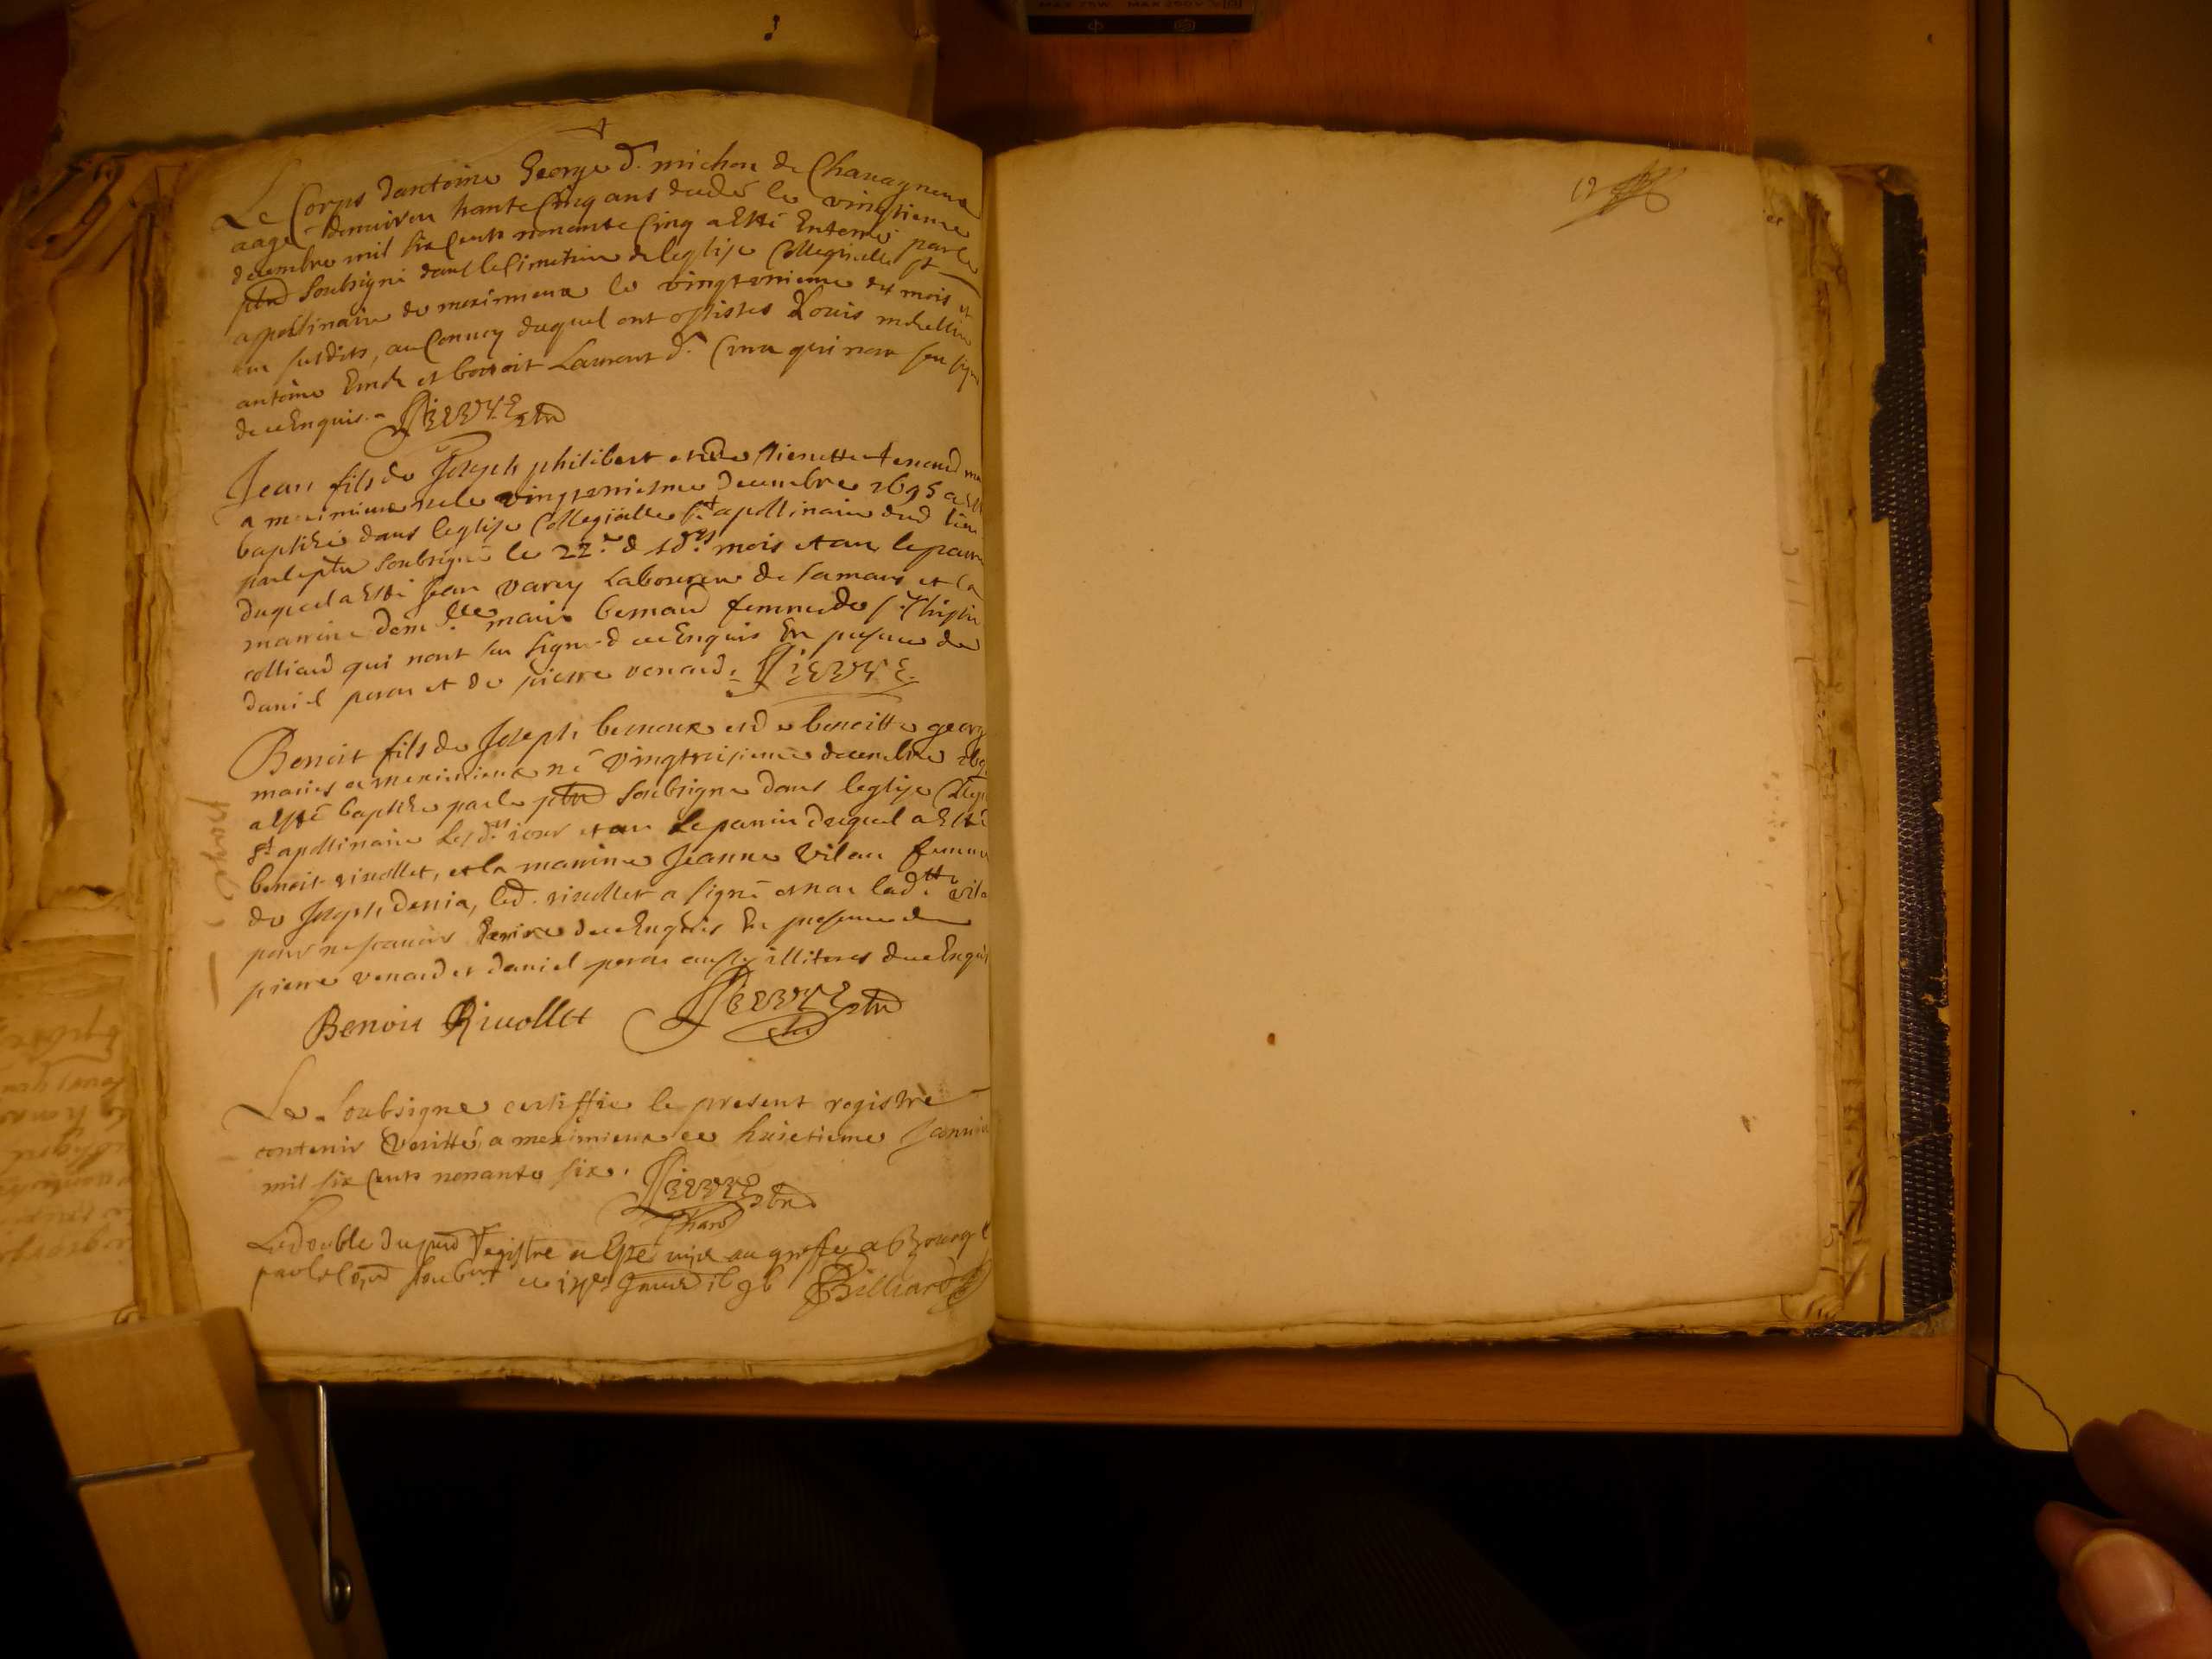 Le Corps dantoine George d. michon de Chavagneux
aagé denuiron trante Cinq ans decedé le vingtieme
decembre mil six Cents nonante Cinq a Esté Enterré par le
ptre soubsigné dans le Cimetiere de leglise Collegialle st
apollinaire de meximieux le vingtunieme des mois et
an susdits, au Convoy duquel ont assistes Louis
antoine et benoit Laurent d. qui nont sceu signe
de ce Enquis.
Jean fils de Joseph philibert et de pierrette venard
a meximieux né le vingtuniesme decembre 1695 a Esté
baptisé dans leglise Collegialle st apollinaire dud lieu
par le ptre soubsigné le 22.e d sdts mois et an le parain
duquel a Esté Jean varey Laboureur de samans et la
marrine dem.lle marie bernard femme de sr
colliard qui nont sceu signé de ce Enquis En presence de
daniel peron et de pierre venard.
Benoit fils de Joseph bernoux et de benoitte georg
maries a meximieux né vingtroisieme decembre
a Esté baptisé par le ptre soubsigné dans leglise
st apollinaire lesd.ts iour et an Le parrin duquel a Esté
benoit rivollet, et la marrine Jeanne Vilan femme
de Joseph denia, led. rivollet a signé et non lad.tte
pour ne scavoir Escrire de ce Enquis En presence de
pierre venard et daniel peron aussy illiteres de ce Enquis
Benoit Rivollet
Le soubsigne certiffie le present registre
contenir Veritté, a meximieux ce huictieme Janvie
mil six Cents nonante six.
Le double du pnt Registre a Esté mis au greffe a Bourg
par le ce Janvr 1696 Billiard
12